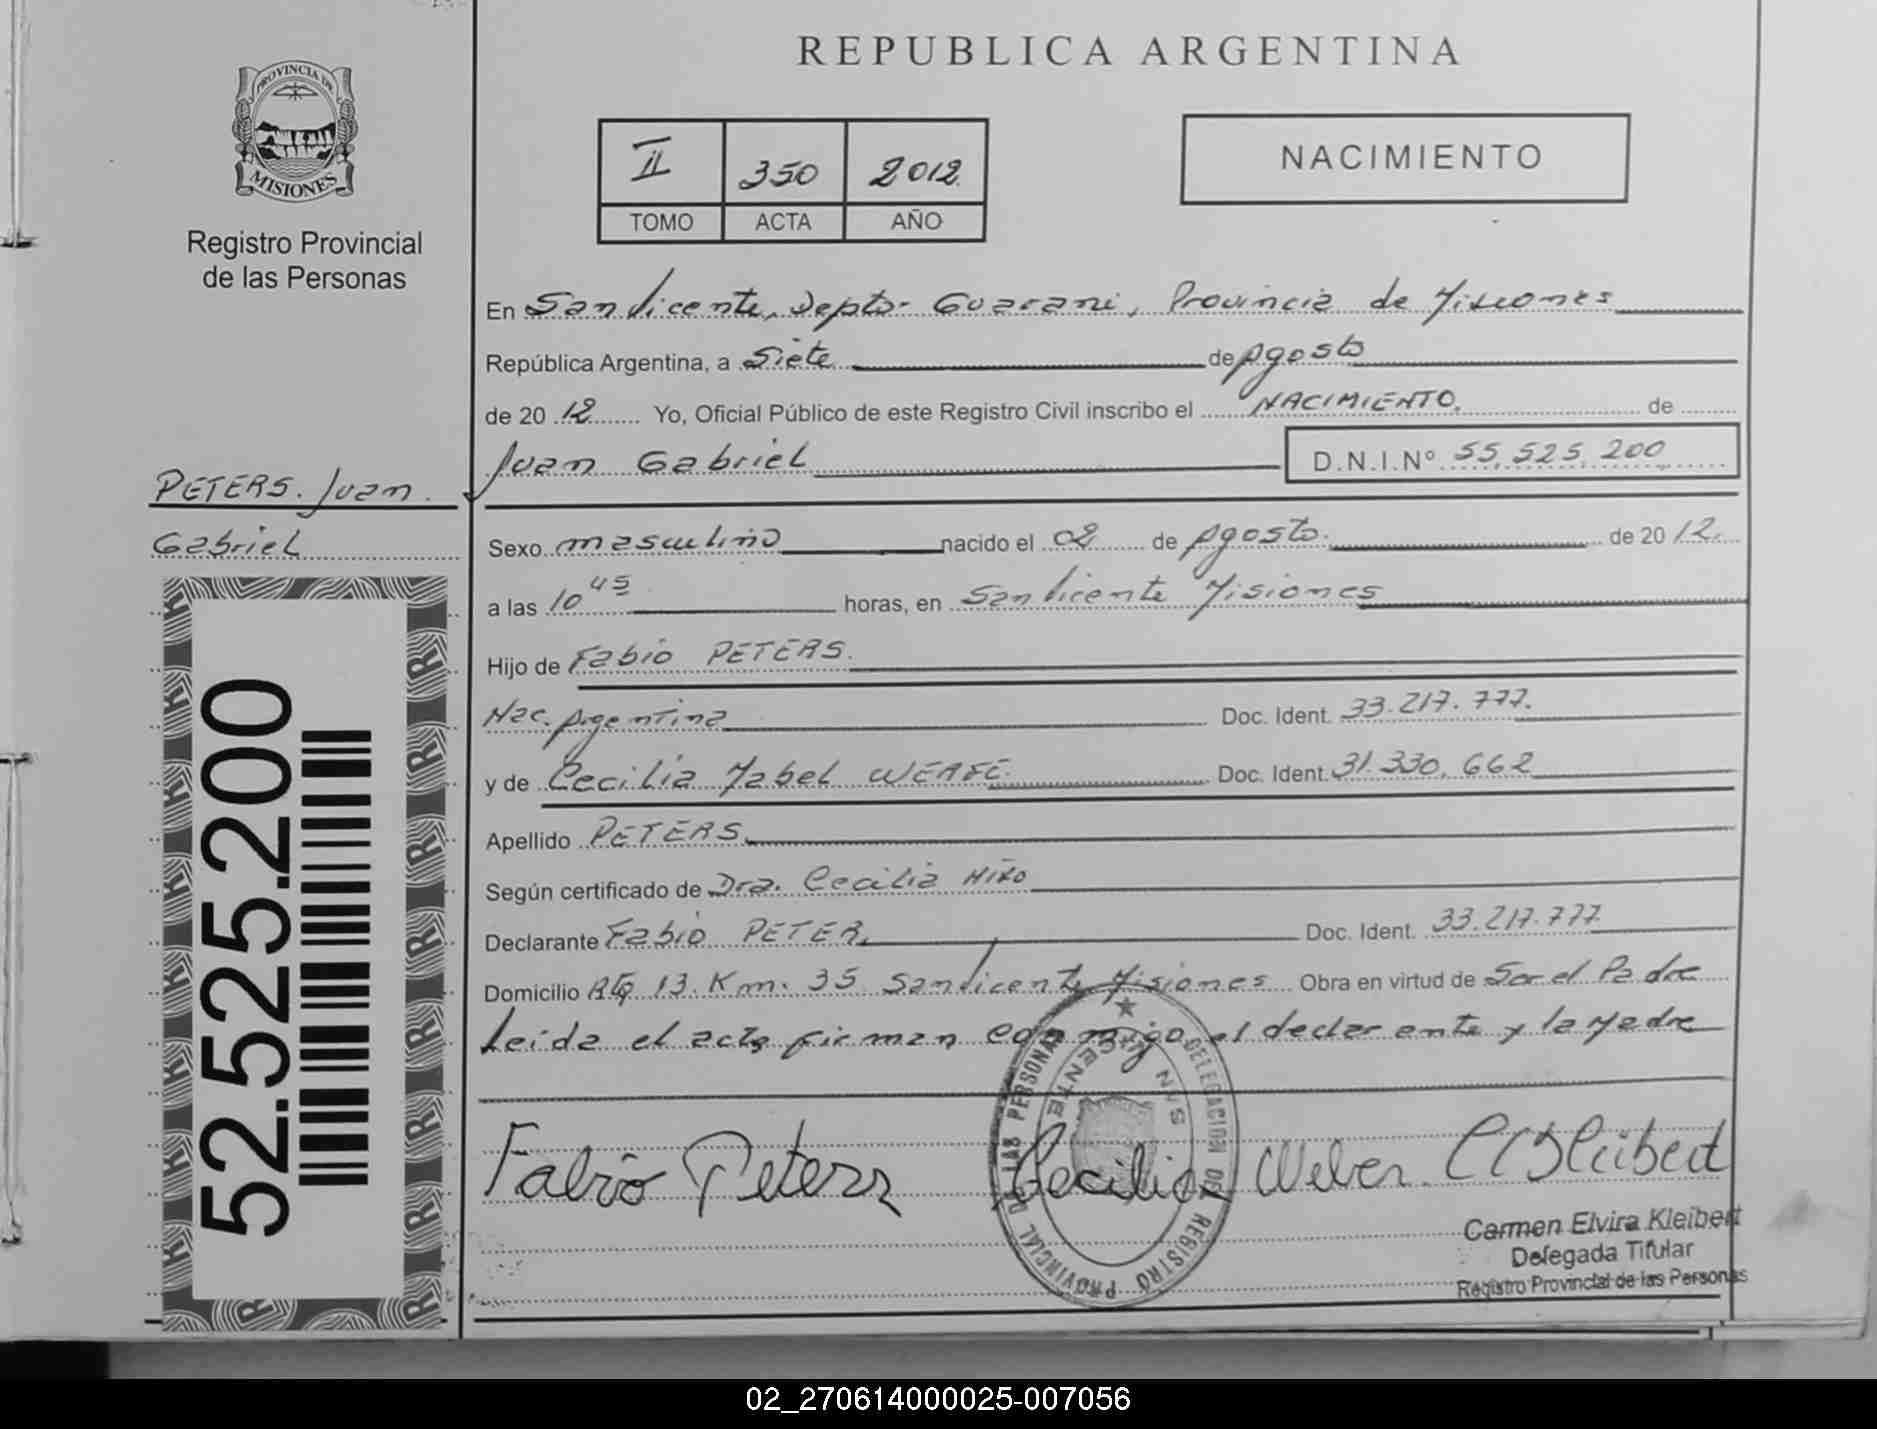 REPUBLICA ARGENTINA
PROVINCIA DE
MISIONES
Registro Provincial
de las Personas
II 350 2012
TOMO ACTA AÑO
NACIMIENTO
En San Vicente, Depto. Guarani, Provincia de Misiones
República Argentina, a Siete de Agosto
de 20 12 Yo, Oficial Público de este Registro Civil inscribo el NACIMIENTO de
Juan Gabriel D.N.I.Nº 55.525.200
PETERS. Juan
Gabriel
Sexo masculino nacido el 02 de Agosto de 20 12
a las 10 45 horas, en San Vicente Misiones
Hijo de Fabio PETERS.
Nac. Argentina Doc. Ident. 33.217.777.
y de Cecilia Mabel Doc. Ident. 31.330.662
Apellido PETERS
Según certificado de Dra. Cecilia
Declarante Fabio PETER, Doc. Ident. 33.217.777
Domicilio 13. Km. 35 San Vicente Misiones Obra en virtud de Ser el Padre
Leida el acta firman conmigo el declarante y la Madre
Fabio Peters Cecilia Weber
DELEGACION DEL REGISTRO PROVINCIAL DE LAS PERSONAS
SAN VICENTE
Carmen Elvira Kleibert
Delegada Titular
Registro Provincial de las Personas
52.525.200
02_270614000025-007056